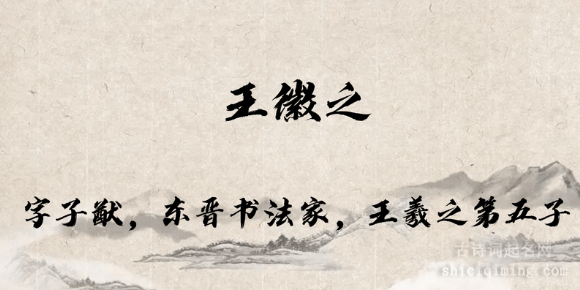 王徽之
字子猷，东晋书法家，王羲之第五子
古诗词起名网
shiciqiming.com